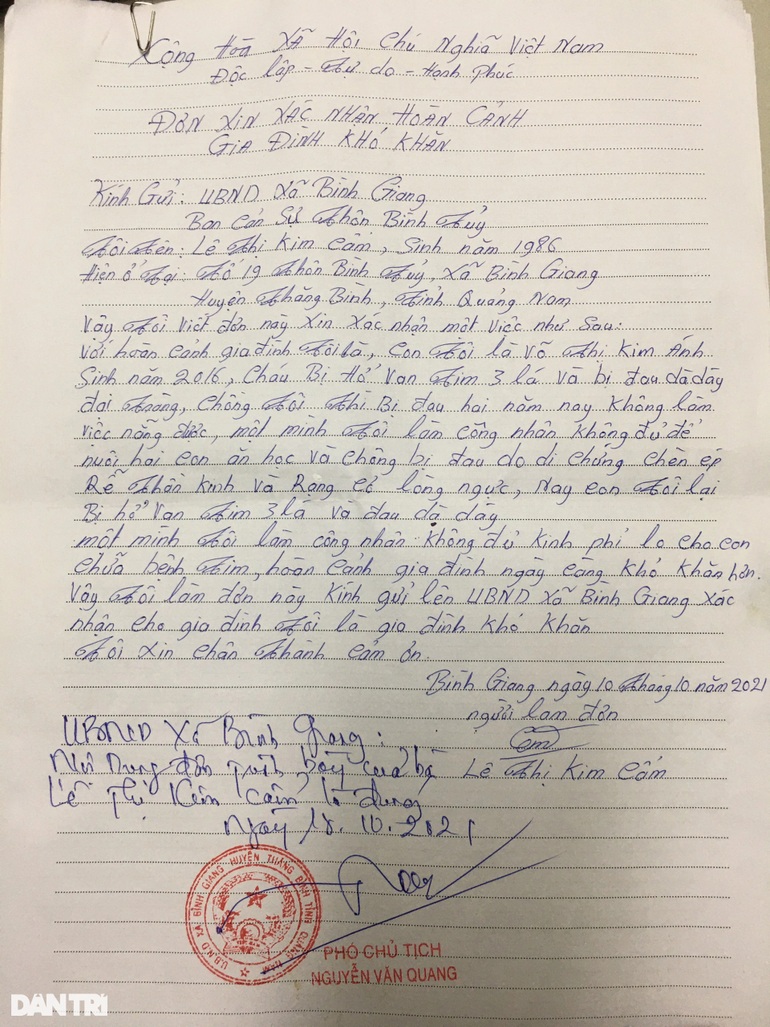 Cộng Hòa Xã Hội Chủ Nghĩa Việt Nam
Độc lập - Tự do - Hạnh Phúc
ĐƠN XIN XÁC NHẬN HOÀN CẢNH
GIA ĐÌNH KHÓ KHĂN
Kính Gửi: UBND Xã Bình Giang
Ban Cán Sự Thôn Bình Túy
Tôi Tên: Lê Thị Kim Cẩm, Sinh năm 1986
Hiện ở Tại: Tổ 19 Thôn Bình Túy, Xã Bình Giang
Huyện Thăng Bình, Tỉnh Quảng Nam
Vậy Tôi viết đơn này Xin Xác nhận một việc như Sau:
Với hoàn cảnh gia đình Tôi là, Con Tôi là Võ Thị Kim Ánh
Sinh năm 2016, Cháu Bị Hở Van Tim 3 lá và bị đau dạ dày
đại Tràng, Chồng Tôi Thì Bị đau hai năm nay Không làm
việc nặng được, một mình Tôi làm công nhân Không đủ để
nuôi hai con ăn học và chồng bị đau do di chứng chèn ép
Rễ Thần Kinh và Rạng cơ lồng ngực, Nay con Tôi lại
Bị hở Van Tim 3 lá và đau dạ dày
một mình Tôi làm công nhân Không đủ Kinh phí lo cho con
chữa bệnh Tim, hoàn cảnh gia đình ngày càng Khó Khăn hơn.
Vậy Tôi làm đơn này Kính gửi lên UBND Xã Bình Giang Xác
nhận cho gia đình Tôi là gia đình Khó Khăn
Tôi Xin chân Thành cảm ơn.
Bình Giang ngày 10 Tháng 10 năm 2021
người làm đơn
Lê Thị Kim Cẩm
UBND Xã Bình Giang:
Nội dung đơn trình bày của bà
Lê Thị Kim Cẩm là đúng
Ngày 18.10.2021
U.B.N.D XÃ BÌNH GIANG HUYỆN THĂNG BÌNH TỈNH QUẢNG NAM
PHÓ CHỦ TỊCH
NGUYỄN VĂN QUANG
DÂN TRÍ